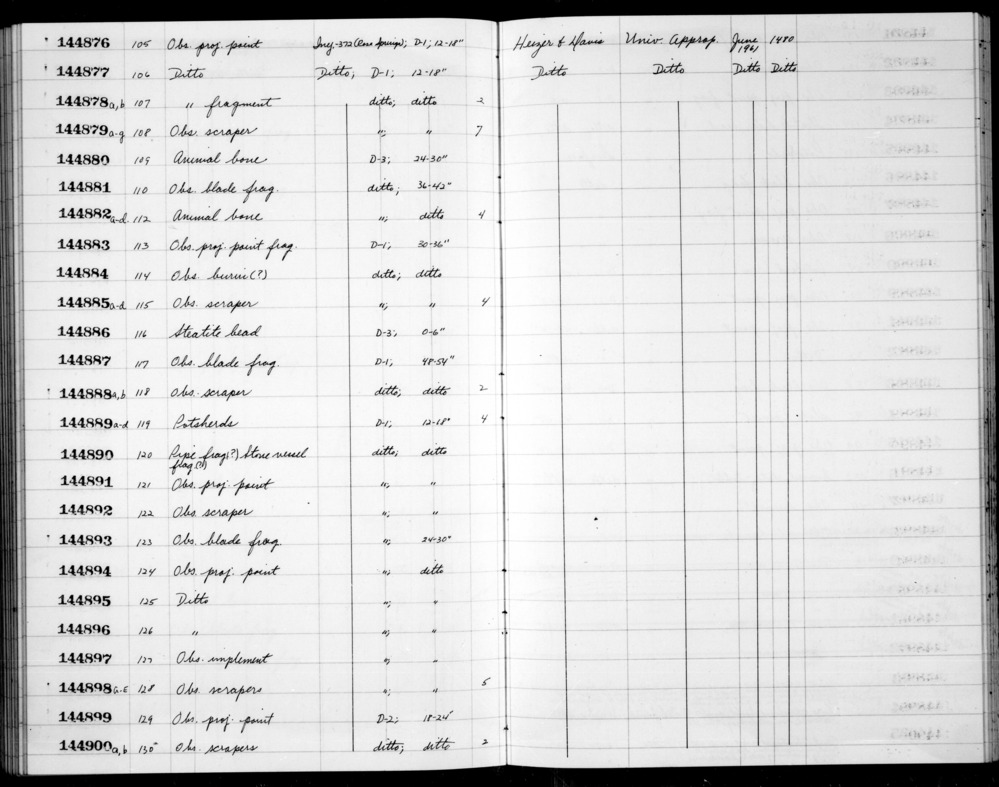 144876 105 Obs. proj. point Iny-372 (Rose Springs); D-1; 12-18" Heizer & Davis Univ. Approp. June 1961 1480
144877 106 Ditto Ditto; D-1; 12-18" Ditto Ditto Ditto Ditto
144878 a,b 107 " fragment ditto; ditto 2
144879 a-g 108 Obs. scraper "; " 7
144880 109 Animal bone D-3; 24-30"
144881 110 Obs. blade frag. ditto; 36-42"
144882 a-d. 112 Animal bone "; ditto 4
144883 113 Obs. proj. point frag. D-1; 30-36"
144884 114 Obs. burin(?) ditto; ditto
144885 a-d 115 Obs. scraper "; " 4
144886 116 Steatite bead D-3; 0-6"
144887 117 Obs. blade frag. D-1; 48-54"
144888 a,b 118 Obs. scraper ditto; ditto 2
144889 a-d 119 Potsherds D-1; 12-18" 4
144890 120 Pipe frag(?) Stone vessel ditto; ditto
frag.(?)
144891 121 Obs. proj. point "; "
144892 122 Obs. scraper "; "
144893 123 Obs. blade frag. "; 24-30"
144894 124 Obs. proj. point "; ditto
144895 125 Ditto "; "
144896 126 " "; "
144897 127 Obs. implement "; "
144898 a-e 128 Obs. scrapers "; " 5
144899 129 Obs. proj. point D-2; 18-24"
144900 a,b 130 Obs. scrapers ditto; ditto 2